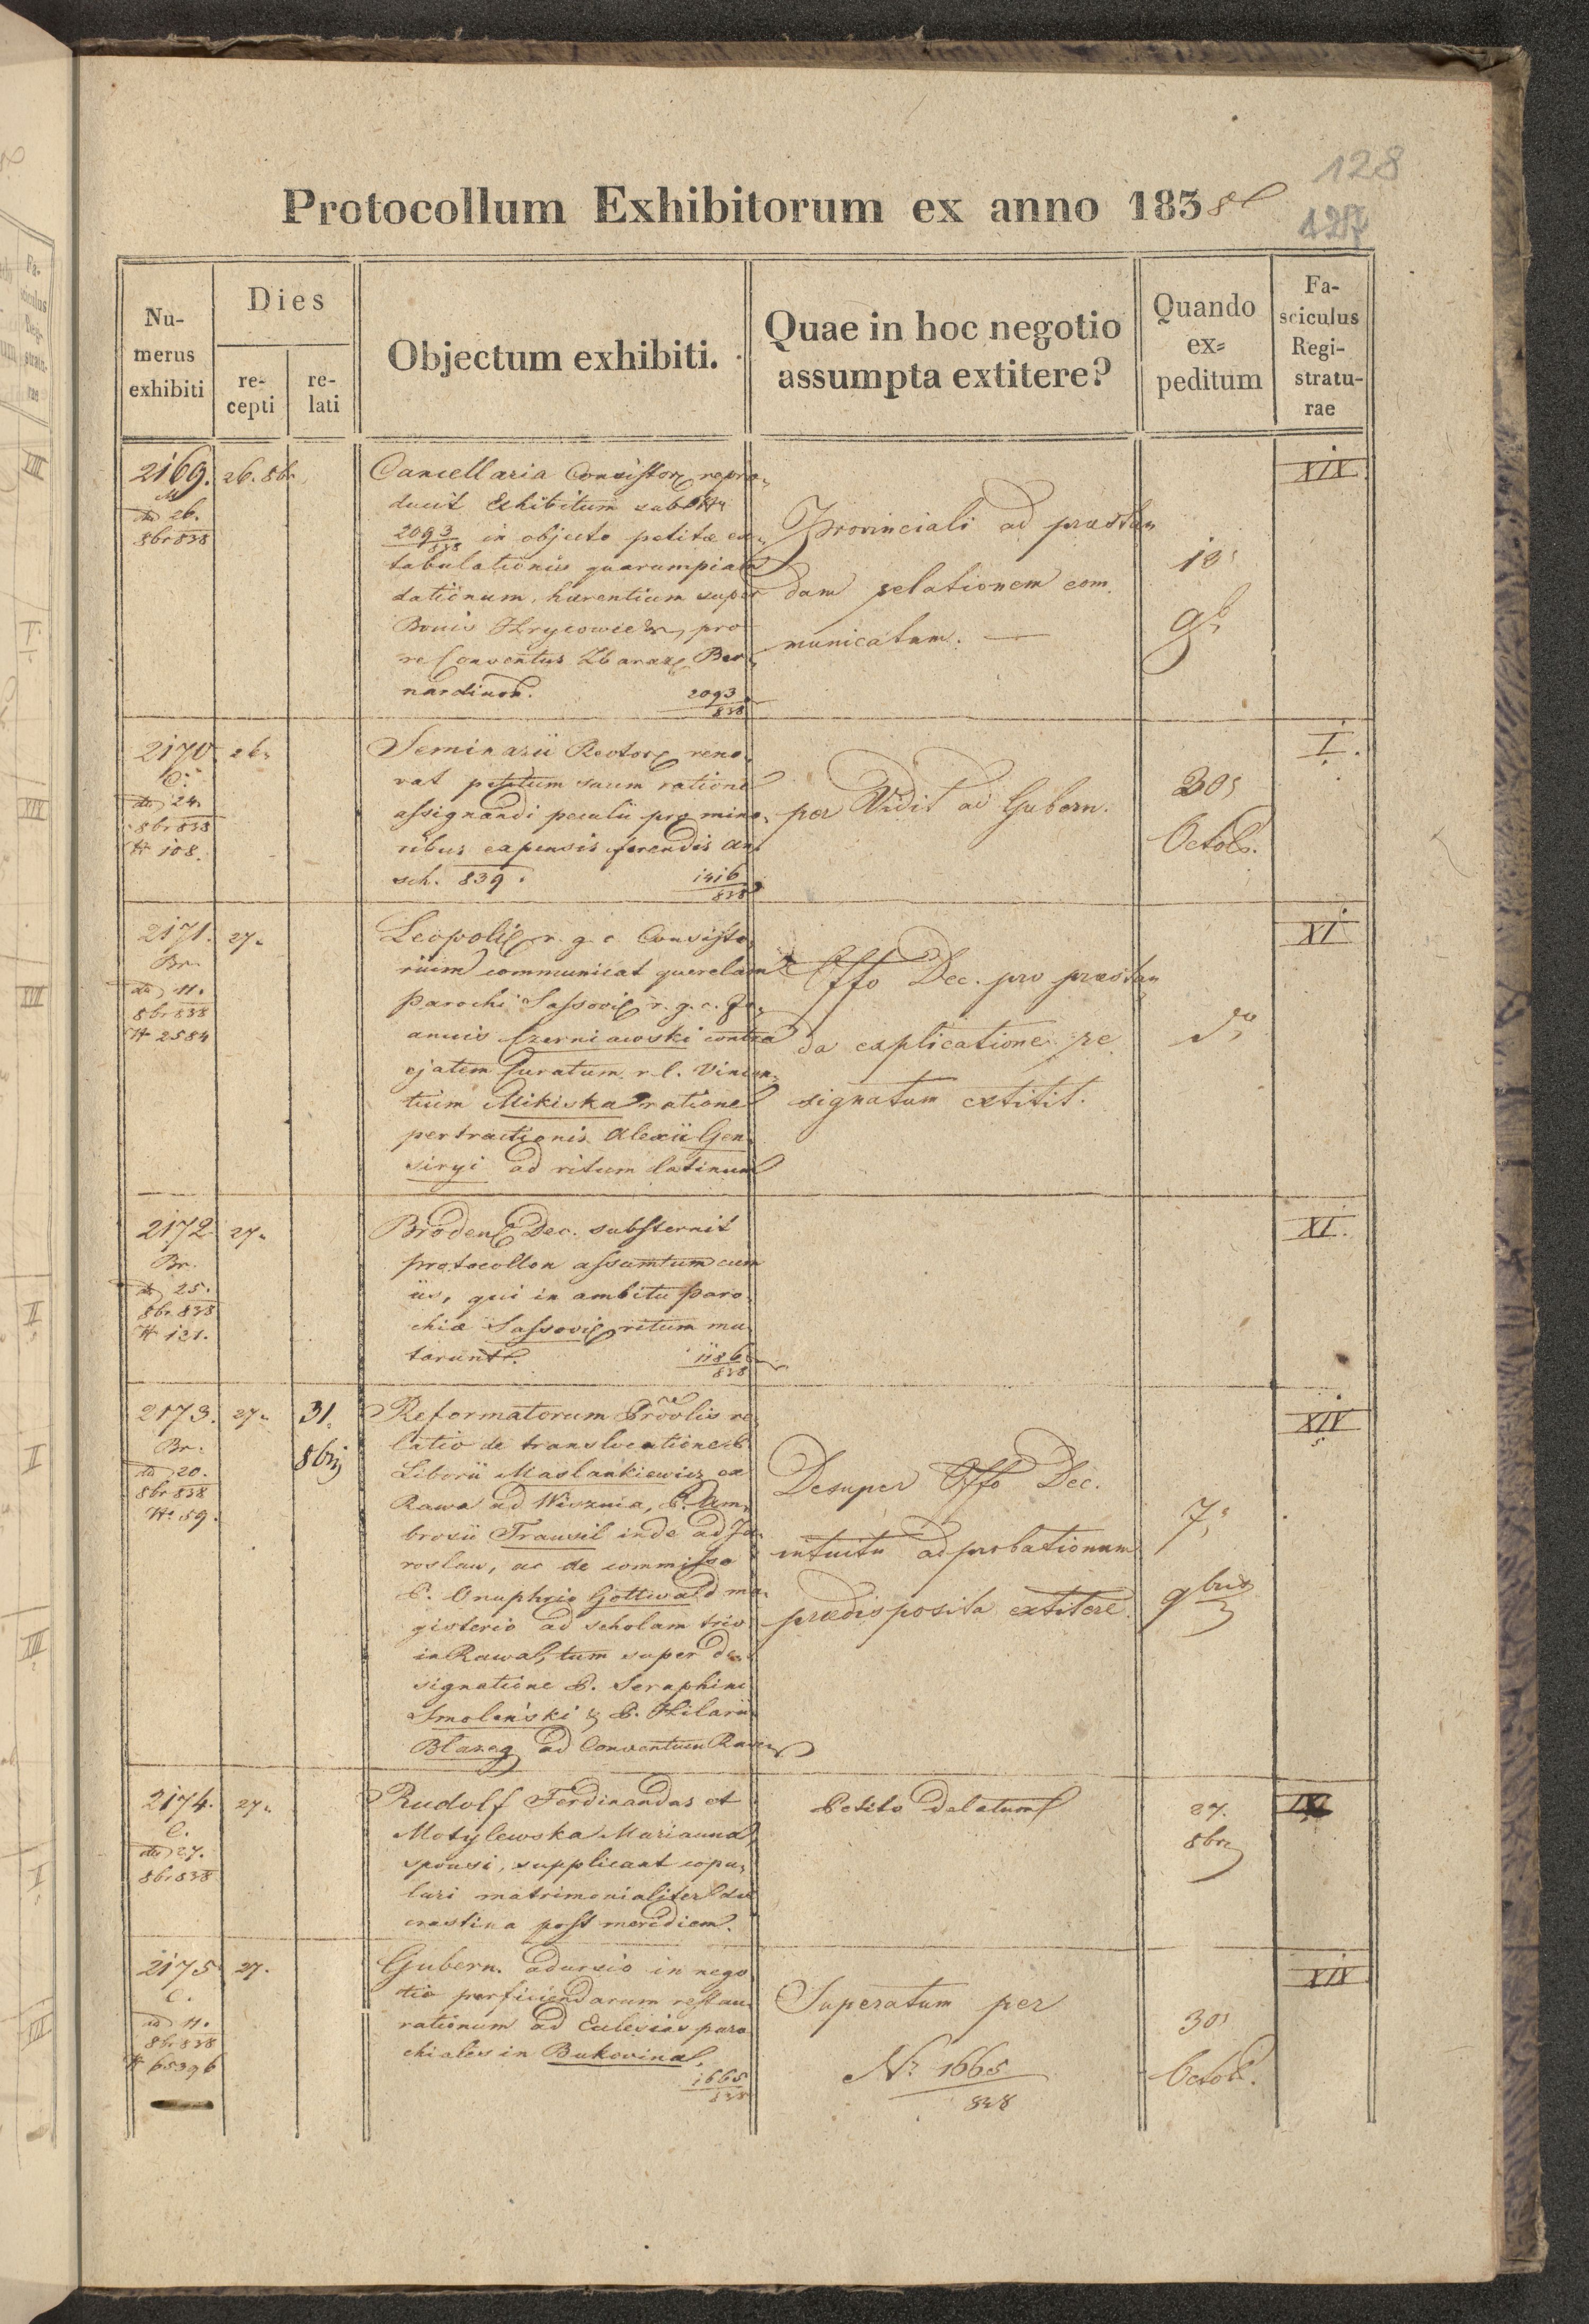 128
127
Protocollum Exhibitorum ex anno 1838
Nu-
merus
exhibiti
Dies
re-
cepti
re-
lati
Objectum exhibiti.
Quae in hoc negotio
assumpta extitere?
Quando
ex=
peditum
Fa-
sciculus
Regi-
stratu-
rae
2169. 26. 8br.
26.
8br 838
Cancellaria Consistor repro„
ducit Exhibitum sub Nr
2093/838 in objecto petitæ ex„
tabulationis quarumpiam
dationum, hærentium super
Bonis Hrycowice, pro
re Conventus Zbaraz Ber„
nardinor. 2093/838
Provinciali ad præstan„
dam relationem com.
municatum. —
10
9b
XIX
2170. 26.
C.
dto 24.
8br 838
N 108.
Seminarii Rector reno„
vat petitum suum ratione
assignandi peculii pro mino„
ribus expensis ferendis an.
sch. 839. 1416/838
per Vidit ad Gubern.
30
Octob.
I.
2171. 27.
Br.
dto 11.
8br 838
N 2584
Leopoli r. g. c. Consisto„
rium communicat querelam
parochi Sassovi r. g. c. Jo„
annis Czerniawski contra
ejatem Curatum r. l. Vincen„
tium Mikiska ratione
pertractionis Alexii Gen„
siryi ad ritum latinum
Offo Dec. pro præstan„
da explicatione re
signatum extitit.
do
XI
2172 27.
Br.
dto 25.
8br 838
N 121.
Broden Dec. substernit
protocollon assumtum cum
iis, qui in ambitu paro„
chiæ Sassovi ritum mu„
tarunt. 1186/838
XI.
2173. 27. 31.
8bris
Br.
dto 20.
8br 838
N 59.
Reformatorum Provlis re„
latio de translocatione P.
Liborii Maslankiewicz ex
Rawa ad Wisznia, P. Am„
brosii Trausil inde ad Ja„
roslau, ac de commisso
P. Onuphrio Gottwald ma„
gisterio ad scholam triv.
in Rawa, tum super de„
signatione P. Seraphini
Smoleński & P. Hilarii
Blazeg ad Conventum Raven
Desuper Offo Dec.
intuitu adprobationum
prædisposita extitere.
7.
9bris
XIV
2174. 27.
C.
dto 27.
8br 838
Rudolf Ferdinandus et
Motylewska Marianna,
sponsi, supplicant copu„
lari matrimonialiter die
crastina post meridiem.
Petito delatum
27.
8br
2175 27.
C.
dto 11.
8br 838
N 65396
Gubern. adursio in nego„
tio perficiendarum restau„
rationum ad Ecclesias paro„
chiales in Bukovina.
1665/838
Superatum per
Nr. 1665/838
30
Octob.
XIX